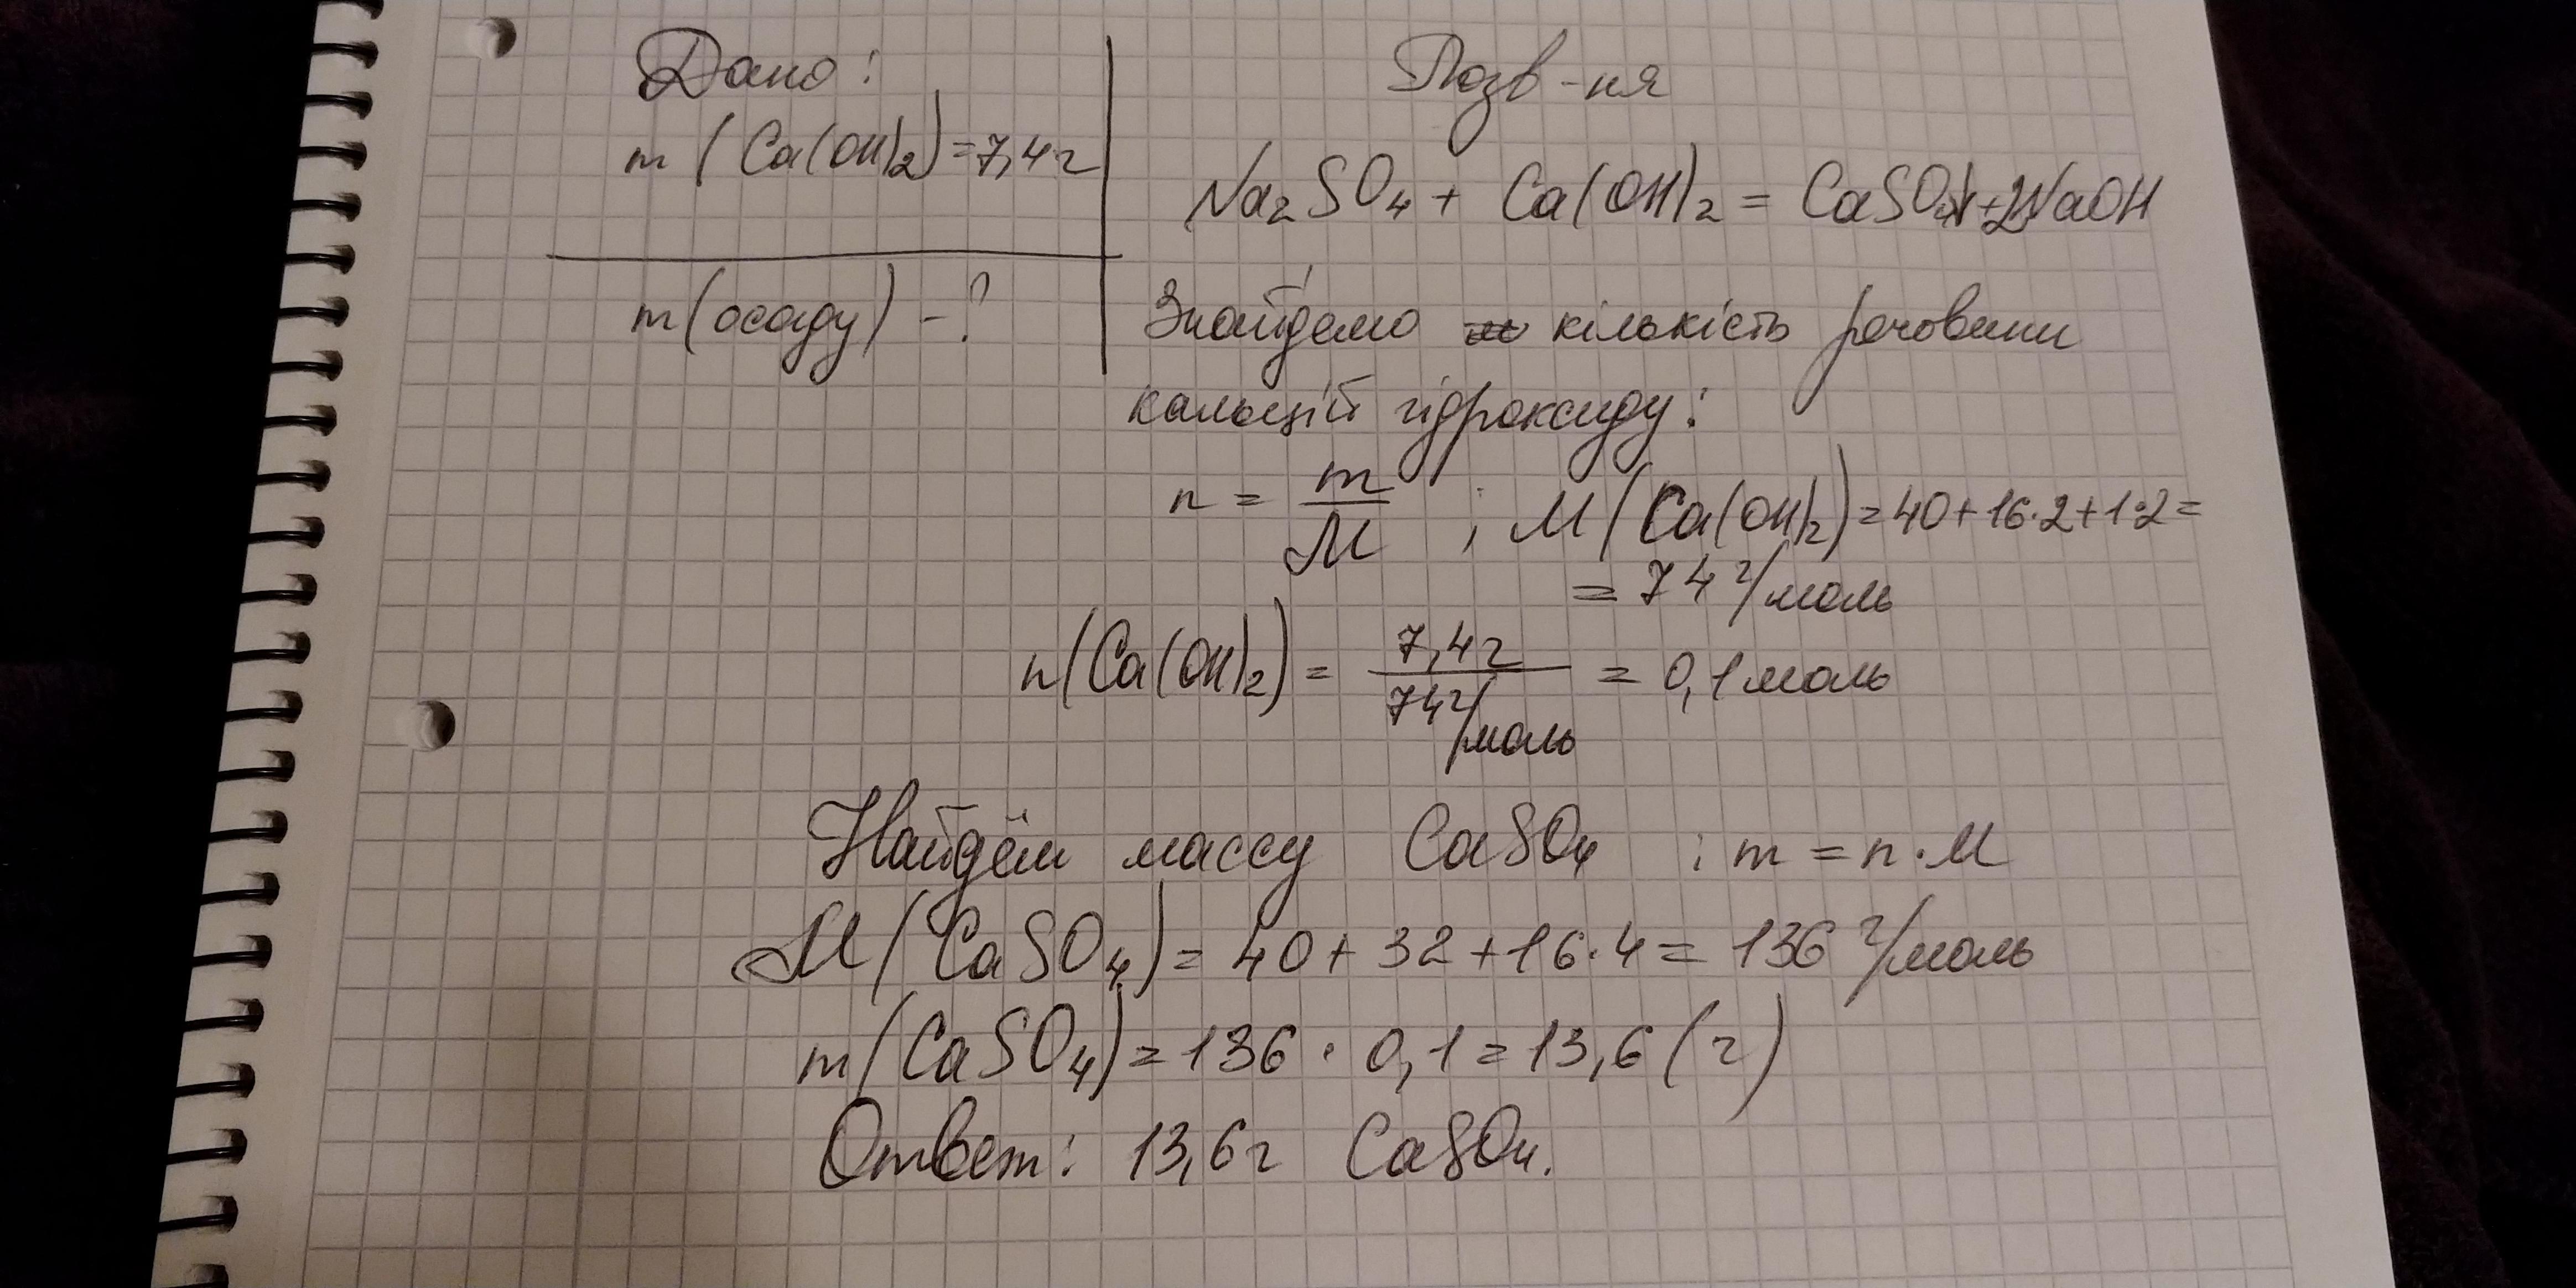 Дано:
m (Ca(OH)2) = 7,4 г
m (осаду) - ?
Розв-ня
Na2SO4 + Ca(OH)2 = CaSO4↓ + 2NaOH
Знайдемо кількість речовини
кальцій гідроксиду:
n = m/M ; M (Ca(OH)2) = 40 + 16·2 + 1·2 =
= 74 г/моль
n(Ca(OH)2) = 7,4г/74 г/моль = 0,1 моль
Найдём массу CaSO4 ; m = n · M
M (CaSO4) = 40 + 32 + 16·4 = 136 г/моль
m (CaSO4) = 136 · 0,1 = 13,6 (г)
Ответ: 13,6 г CaSO4.